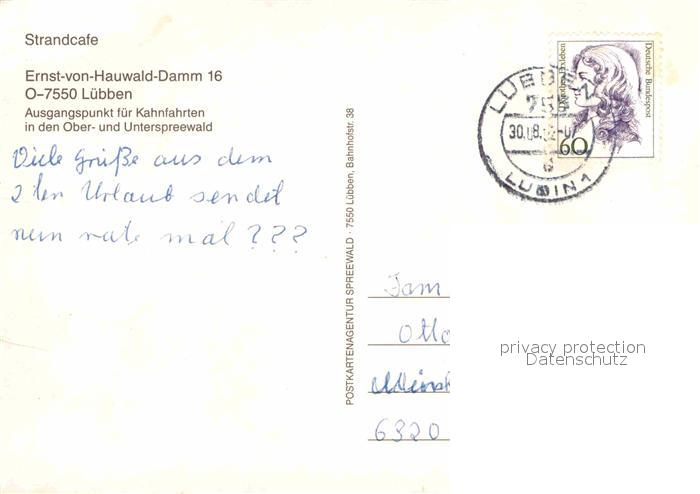 Strandcafe
Ernst-von-Hauwald-Damm 16
O–7550 Lübben
Ausgangspunkt für Kahnfahrten
in den Ober- und Unterspreewald
Viele Grüße aus dem
2ten Urlaub sendet
nun rate mal ???
POSTKARTENAGENTUR SPREEWALD · 7550 Lübben, Bahnhofstr. 38
LÜBBEN
30.08.
LUBIN 1
Deutsche Bundespost
60
Fam
Otto
6320
privacy protection
Datenschutz